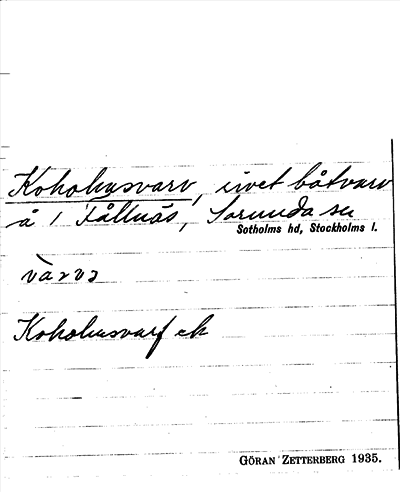 Kohohusvarv, livet båtvarv
å 1 Fållnäs, Sorunda sn
Sotholms hd, Stockholms l.
vàrvə
Kohohusvarf ek
GÖRAN ZETTERBERG 1935.